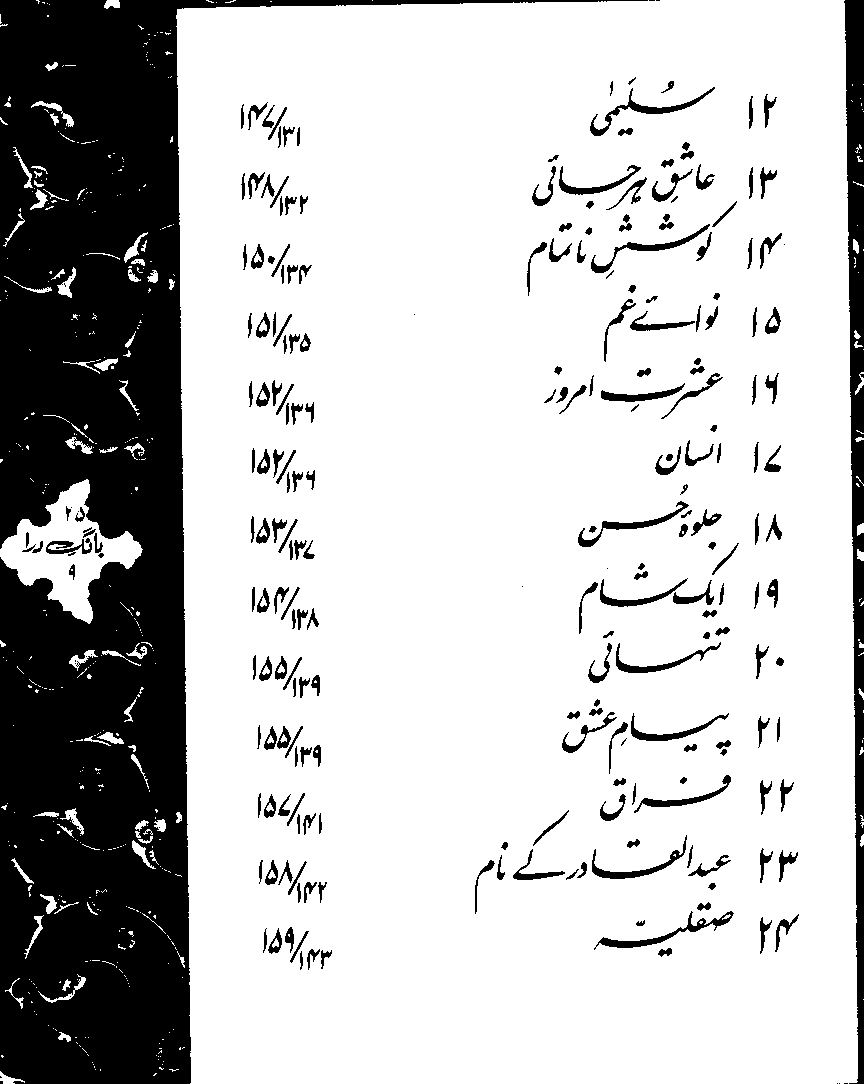 ۱۲ سُلَیمٰی ۱۴۷/۱۳۱
۱۳ عاشقِ ہرجائی ۱۴۸/۱۳۲
۱۴ کوششِ ناتمام ۱۵۰/۱۳۴
۱۵ نوائے غم ۱۵۱/۱۳۵
۱۶ عشرتِ امروز ۱۵۲/۱۳۶
۱۷ انسان ۱۵۲/۱۳۶
۱۸ جلوۂ حُسن ۱۵۳/۱۳۷
۱۹ ایک شام ۱۵۴/۱۳۸
۲۰ تنہائی ۱۵۵/۱۳۹
۲۱ پیامِ عشق ۱۵۵/۱۳۹
۲۲ فراق ۱۵۷/۱۴۱
۲۳ عبدالقادر کے نام ۱۵۸/۱۴۲
۲۴ صقلیّہ ۱۵۹/۱۴۳
۲۵
بانگِ درا
۹